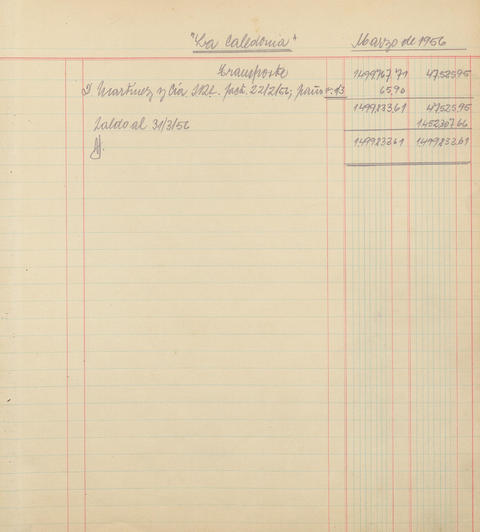 "La Caledonia" Marzo de 1956
Transporte 1499767 71 4752595
D Martinez y Cía SRL. fact. 22/2/56; paño 13 65,90
1499833,61 4752595
Saldo al 31/3/56 1452307.66
1499833.61 1499833.61